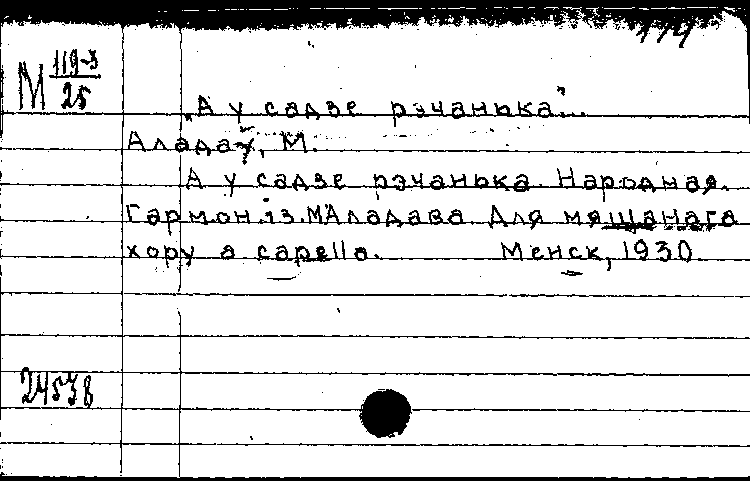 М 119-3
25
„А у садзе рэчанька”...
Аладаў, М.
А у садзе рэчанька. Народная.
Гармон.із. М.Аладава. Для мяшанага
хору a capella. Менск, 1930.
24538